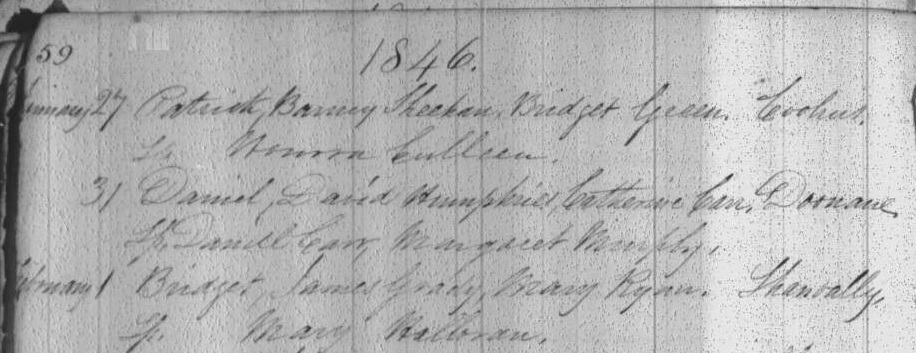 59 1846.
January 27 Patrick, Barney Sheehan, Bridget Green.
Sp. Honora Culleen.
31 Daniel, David Humphries, Catherine Carr, Doonane
Sp. Daniel Carr, Margaret Murphy.
February 1 Bridget, James Grady, Mary Ryan. Shanvally,
Sp. Mary Halloran.